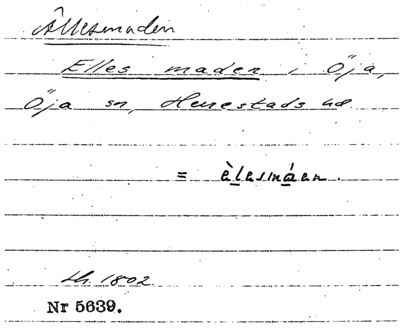 Ällesmaden
Elles maden i Öja,
Öja sn, Herrestads hd
= èlesmáen.
Lh. 1802
Nr 5639.